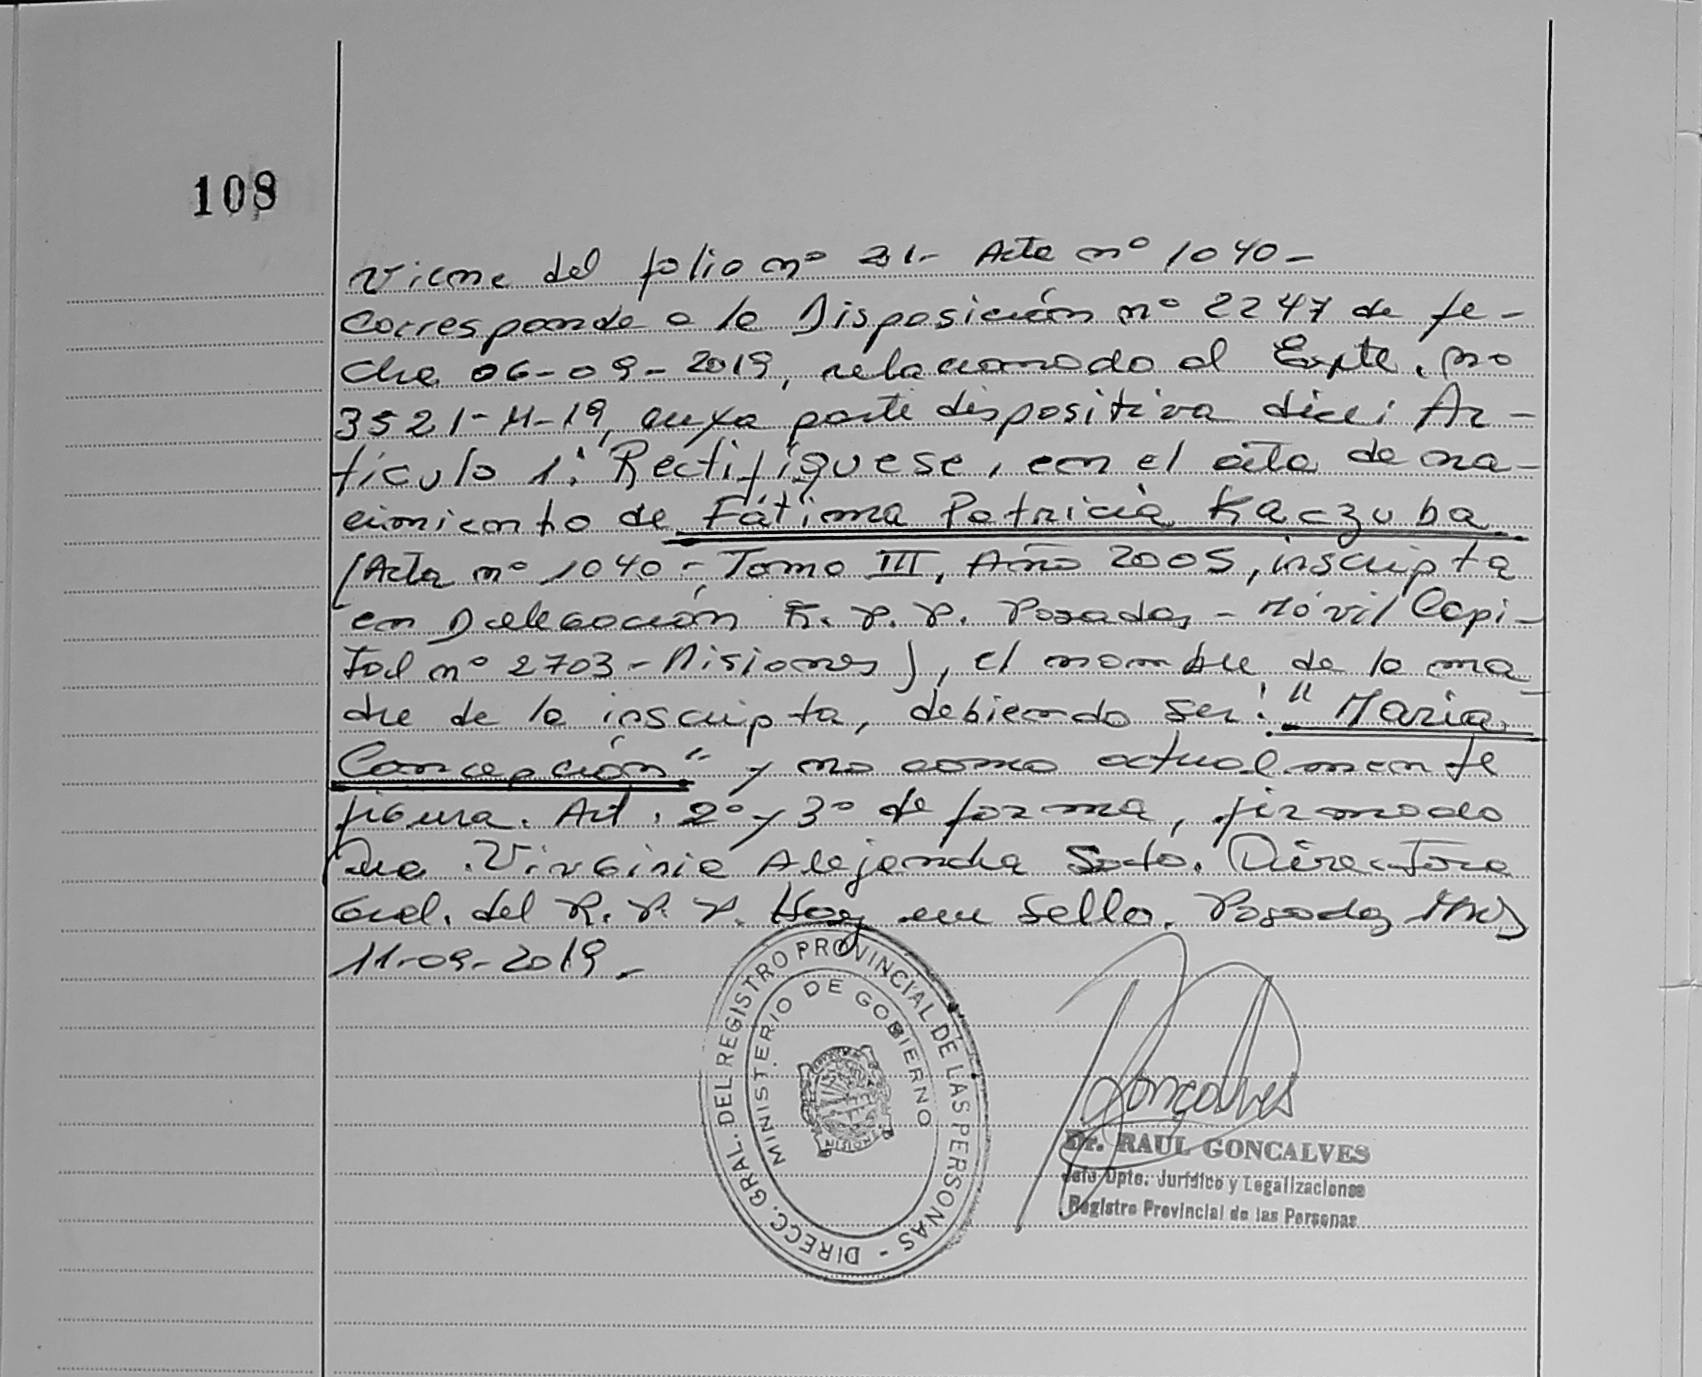 108
Viene del folio nº 21- Acta nº 1040-
Corresponde a la Disposición nº 2247 de fe-
cha 06-09-2019, relacionado al Expte. nº
3521-H-19, cuya parte dispositiva dice: Ar-
tículo 1: Rectifíquese, en el acta de na-
cimiento de Fátima Patricia Kaczuba
(Acta nº 1040 - Tomo III, Año 2005, inscripta
en Delegación R. P. P. Posadas - Móvil Capi-
tal nº 2703 - Misiones), el nombre de la ma-
dre de la inscripta, debiendo ser: "Maria
Concepción" y no como actualmente
figura. Art. 2º y 3º de forma, firmado
Dra. Virginia Alejandra Soto. Directora
Gral. del R. P. P. Hay un sello. Posadas Mnes
11-09-2019.-
DIRECC. GRAL. DEL REGISTRO PROVINCIAL DE LAS PERSONAS -
MINISTERIO DE GOBIERNO
MISIONES
Goncalves
Dr. RAUL GONCALVES
Jefe Dpto. Jurídico y Legalizaciones
Registro Provincial de las Personas